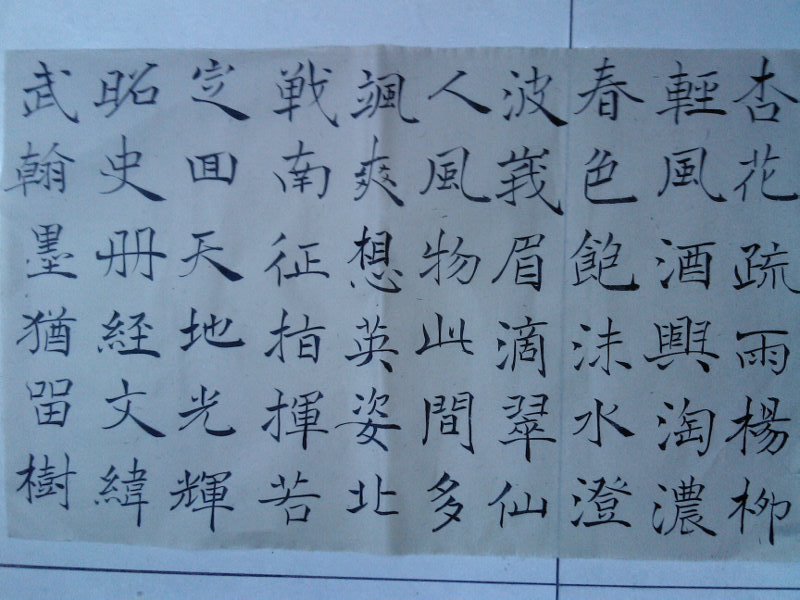 杏花疏雨楊柳
輕風酒興淘濃
春色飽沫水澄
波峩眉滴翠仙
人風物此間多
颯爽想英姿北
戦南征指揮若
定回天地光輝
昭史册経文緯
武翰墨猶留樹